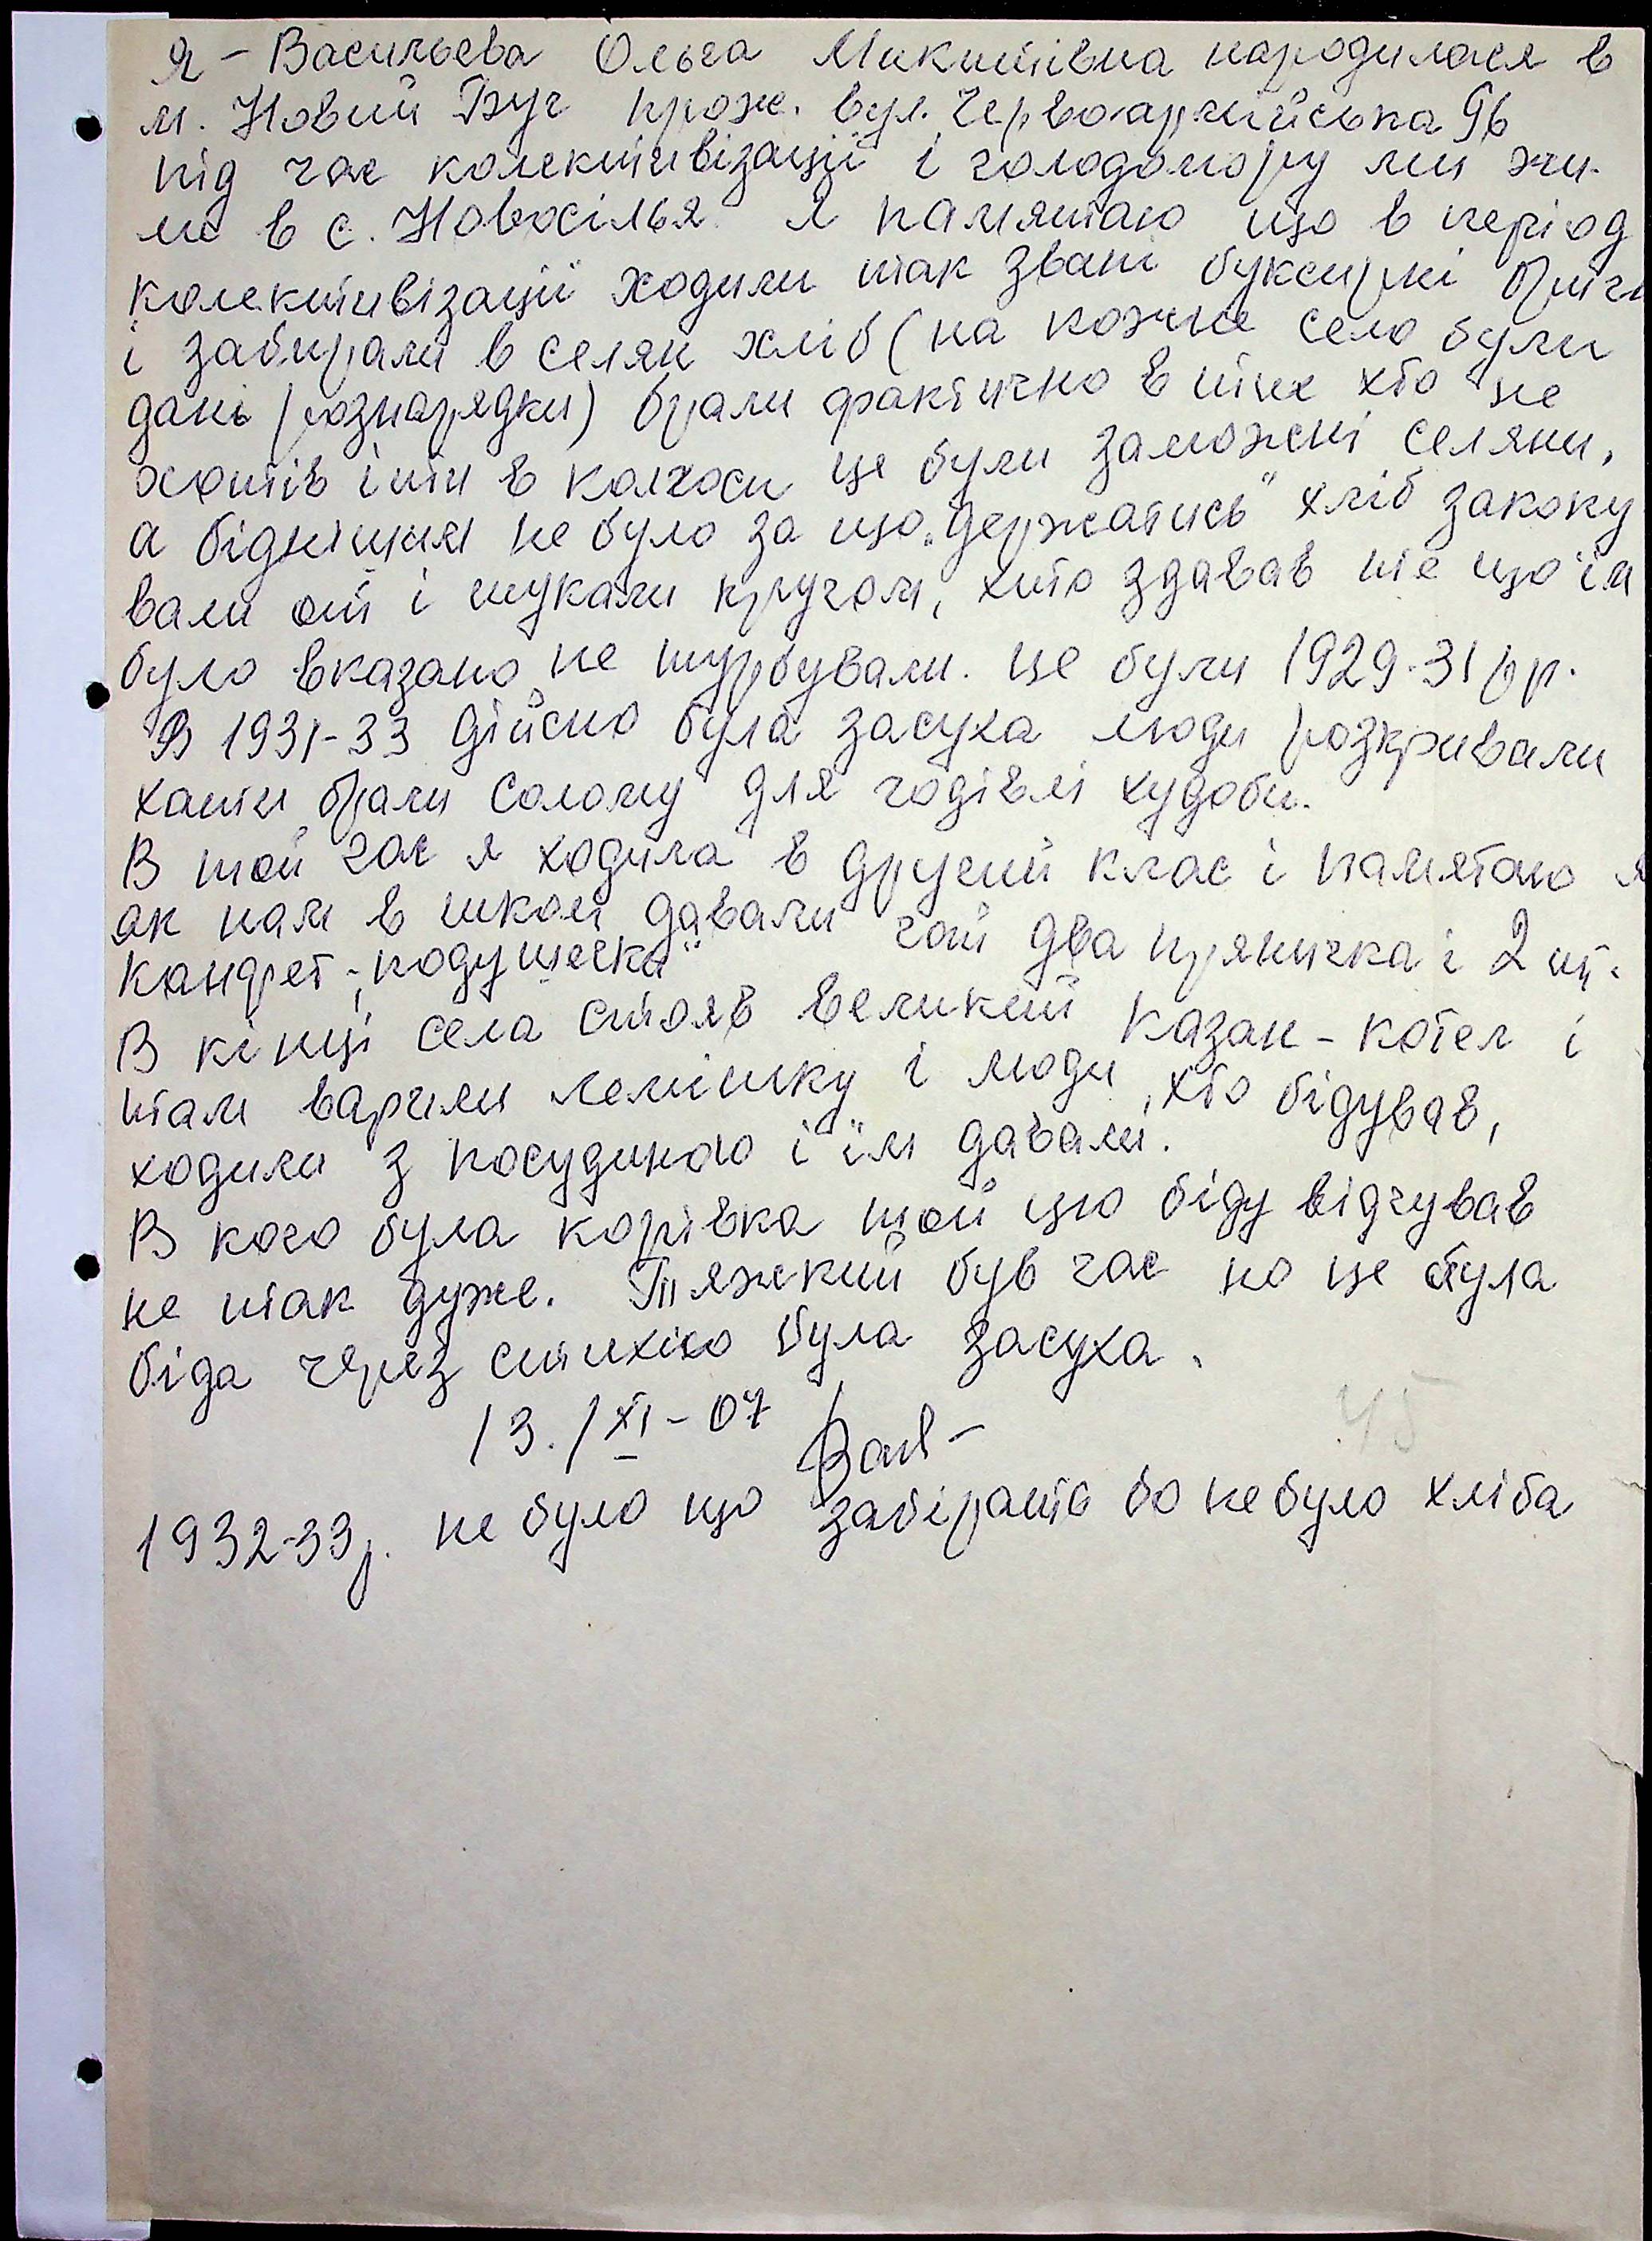 Я - Васильєва Ольга Микитівна народилася в
м. Новий Буг прож. вул. Червоармійська 96
під час колективізації і голодомору ми жи-
ли в с. Новосілья я памятаю що в період
колективізації ходили так звані буксирні бриг
і забирали в селян хліб (на кожне село були
дані рознарядки) брали фактично в тих хто не
хотів іти в колхоси це були заможні селяни,
а біднішим не було за що "держатись" хліб закопу
вали от і шукали кругом, хто здавав те що їм
було вказано не турбували. це були 1929-31 рр.
В 1931-33 дійсно була засуха люди розкривали
хати брали солому для годівлі худоби.
В той час я ходила в другий клас і памятаю я
ак нам в школі давали чай два пряничка і 2 шт.
Канфет - "подушечка"
В кінці села стояв великий казан - котел і
там варили лемішку і люди, хто бідував,
ходили з посудиною і їм давали.
В кого була корівка той цю біду відчував
не так дуже. Тяжкий був час но це була
біда через стихію була засуха.
13./XI - 07 Вас-
45
1932-33р. не було що забірать бо не було хліба